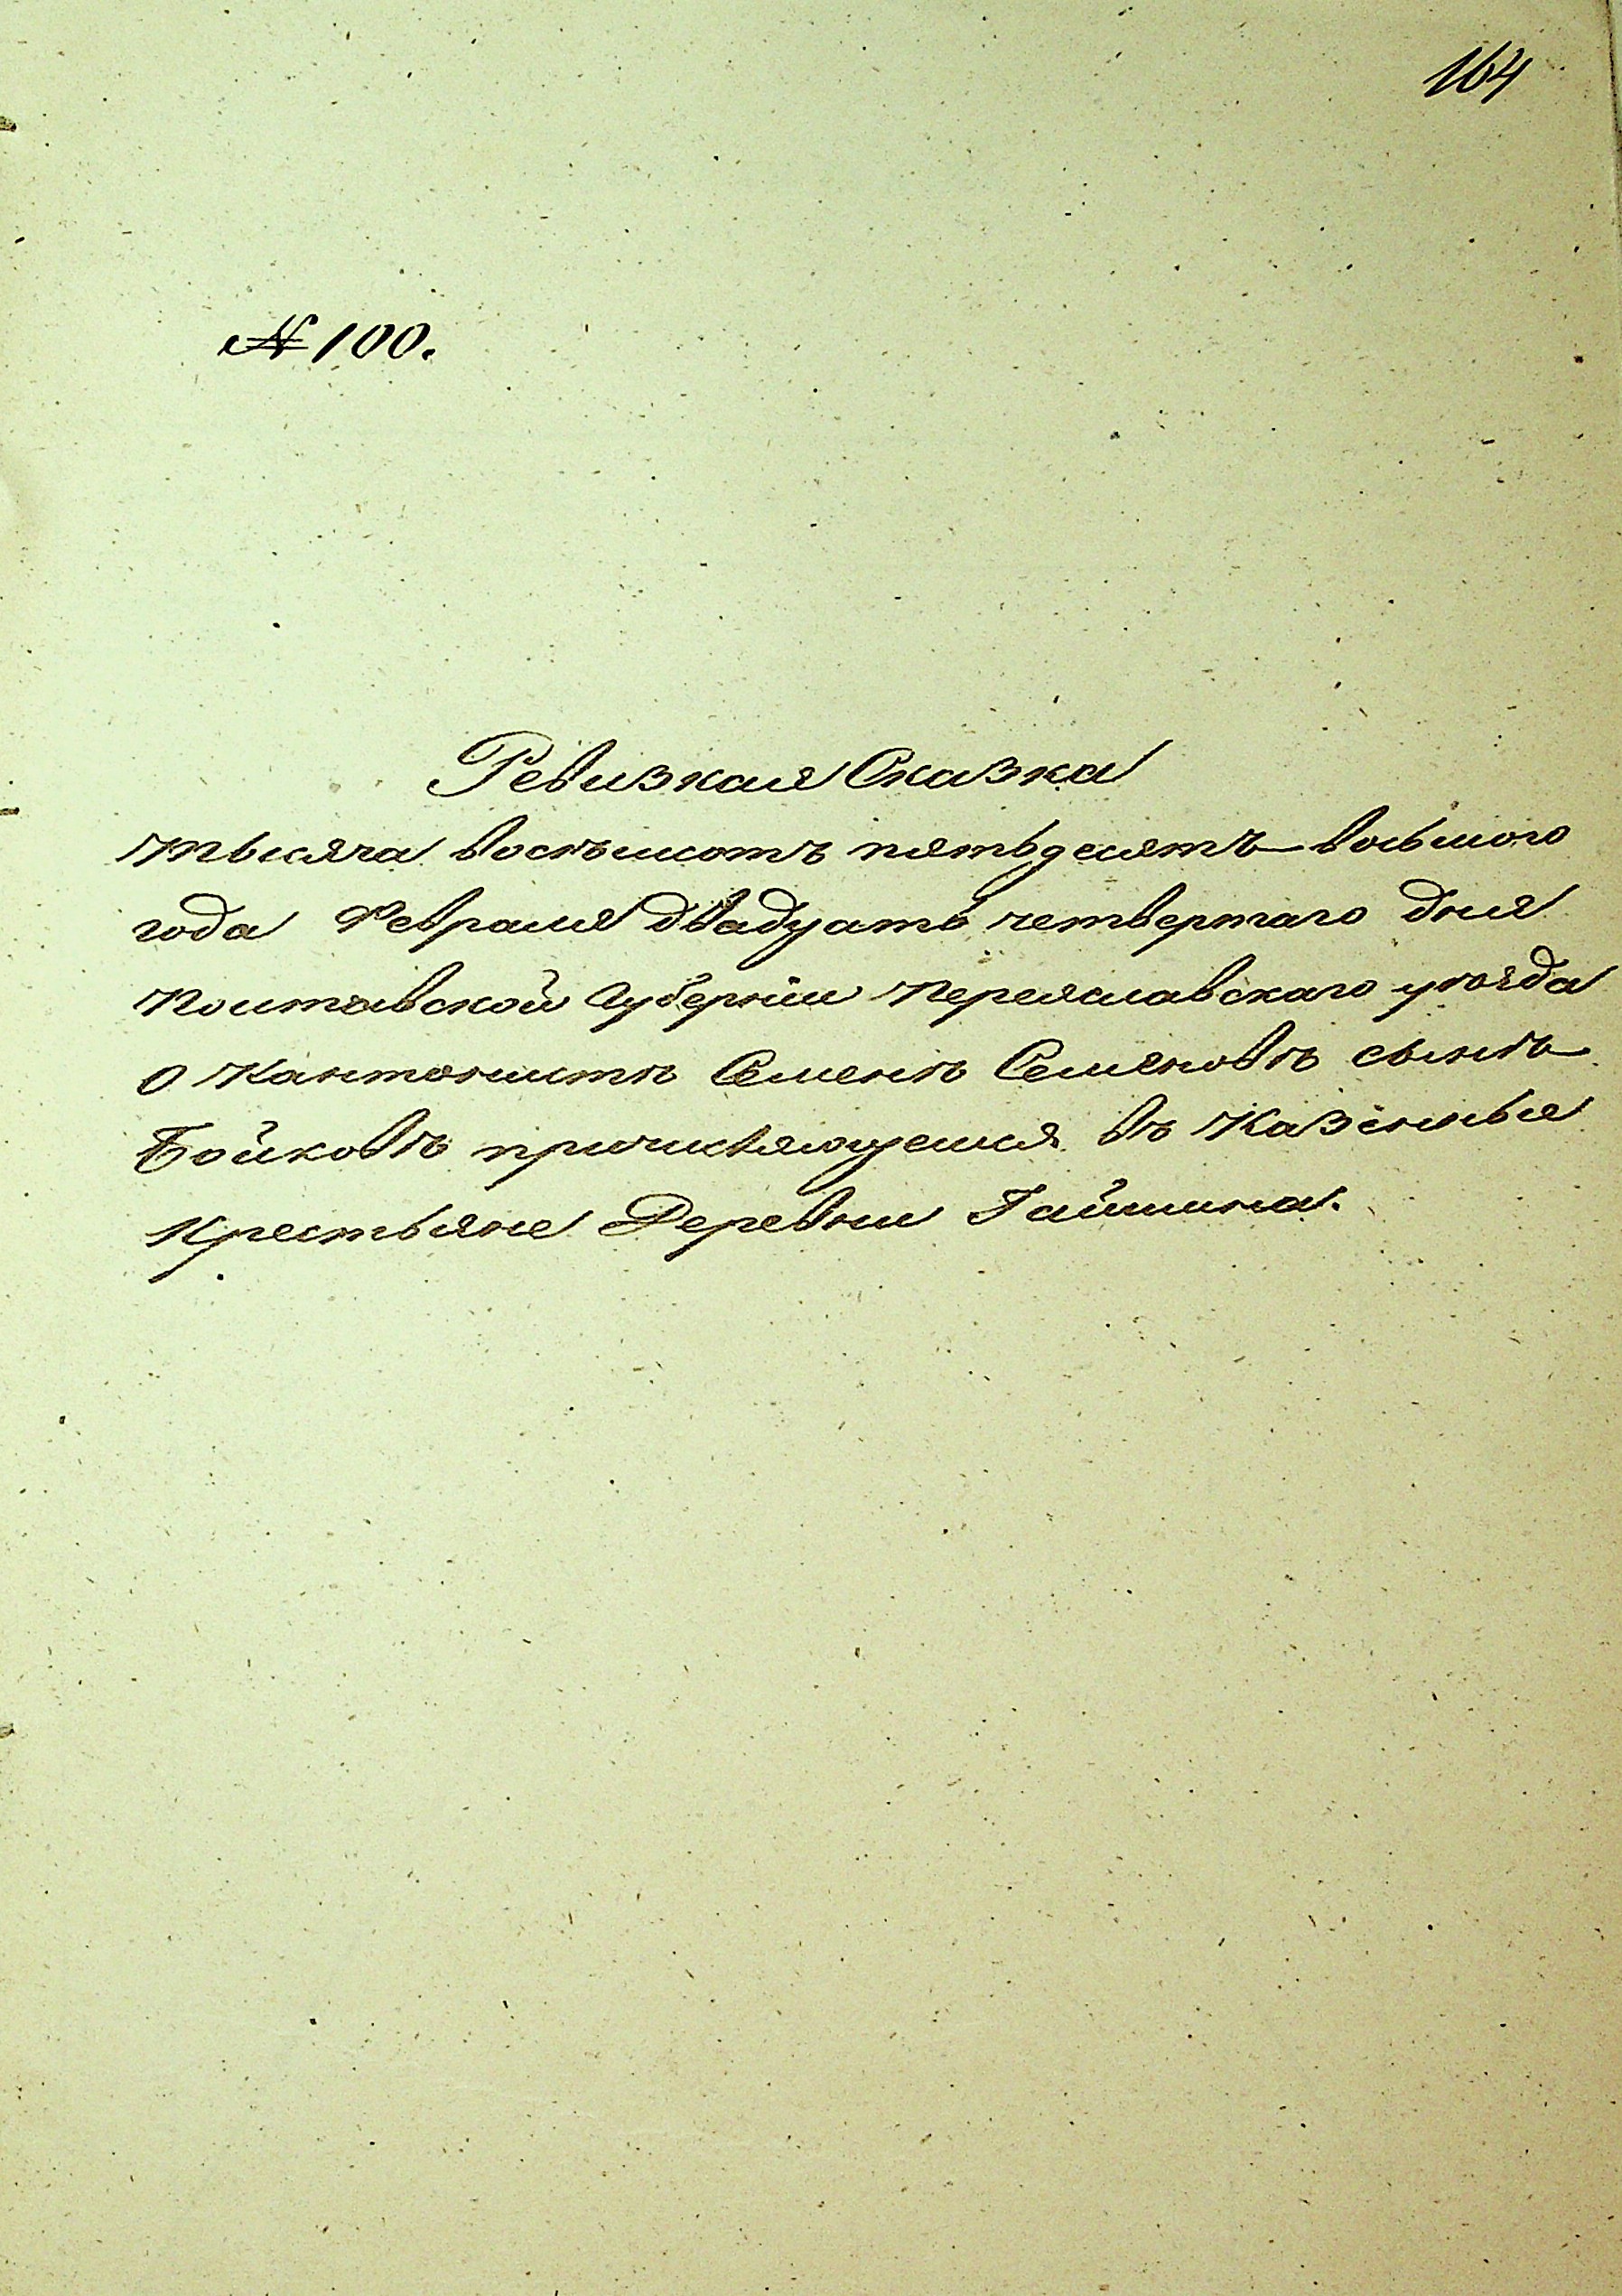 164
№ 100.
Ревизкая Сказка
тысяча восемьсотъ пятьдесятъ восьмого
года Февраля двадцать четвертаго дня
Полтавской Губерніи Переяславскаго уѣзда
о Кантонистѣ Семенѣ Семеновѣ сынѣ
Бойковѣ причисляющемся въ Казенные
крестьяне Деревни Гайшина.